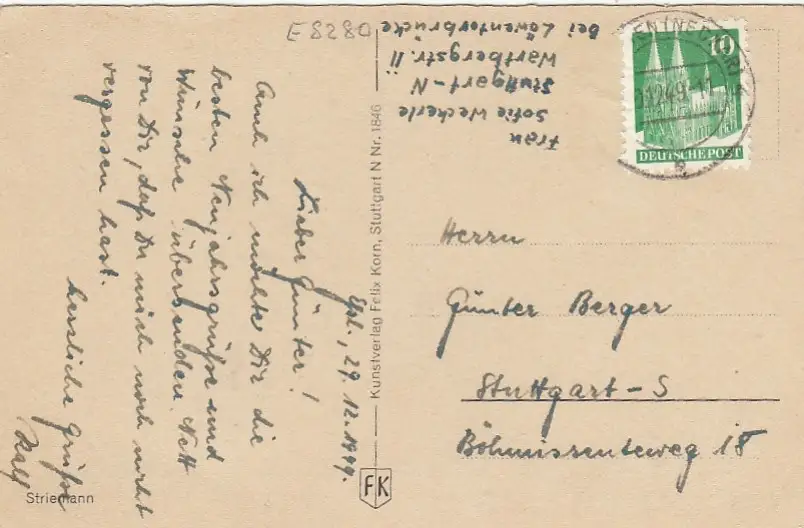 E 8280
Frau
Sofie Weckerle
Stuttgart-N
Wartbergstr. 11
bei Löwentorbrücke
10
DEUTSCHE POST
Esl., 29.12.1949.
Lieber Günter!
Auch ich möchte Dir die
besten Neujahrsgrüße und
Wünsche übersenden. Nett
von Dir, daß Du mich noch nicht
vergessen hast.
herzliche Grüße
Ralf
Kunstverlag Felix Korn, Stuttgart N Nr. 1846
FK
Striemann
Herrn
Günter Berger
Stuttgart-S
Böhmissenteweg 18